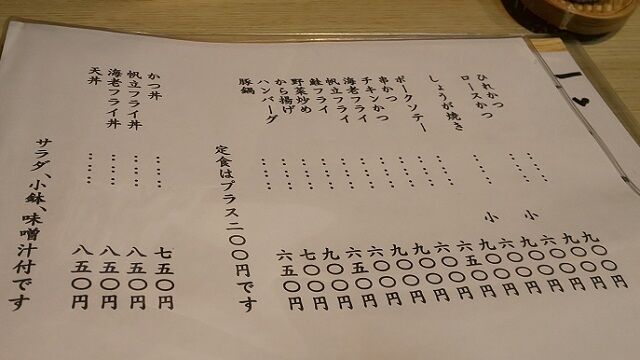 ひれかつ‥‥‥九〇〇円
九〇〇円
ロースかつ
小 六〇〇円
九〇〇円
小 九〇〇円
しょうが焼き‥‥‥六五〇円
ポークソテー‥‥‥六〇〇円
串かつ‥‥‥九〇〇円
チキンかつ‥‥‥九〇〇円
海老フライ‥‥‥九〇〇円
帆立フライ‥‥‥六〇〇円
鮭フライ‥‥‥六五〇円
野菜炒め‥‥‥九〇〇円
から揚げ‥‥‥七〇〇円
ハンバーグ‥‥‥六五〇円
豚鍋
定食はプラス二〇〇円です
かつ丼‥‥‥七五〇円
帆立フライ丼‥‥‥八五〇円
海老フライ丼‥‥‥八五〇円
天丼‥‥‥八五〇円
サラダ、小鉢、味噌汁付です